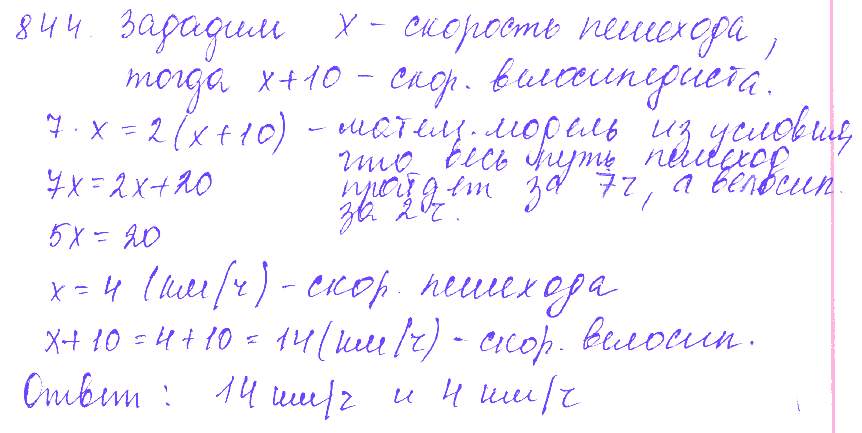 844. Зададим x - скорость пешехода,
тогда x+10 - скор. велосипедиста.
7 · x = 2(x+10) - матем. модель из условия,
что весь путь пешеход
7x = 2x+20 пройдет за 7ч, а велосип.
за 2ч.
5x = 20
x = 4 (км/ч) - скор. пешехода
x+10 = 4+10 = 14 (км/ч) - скор. велосип.
Ответ: 14 км/ч и 4 км/ч